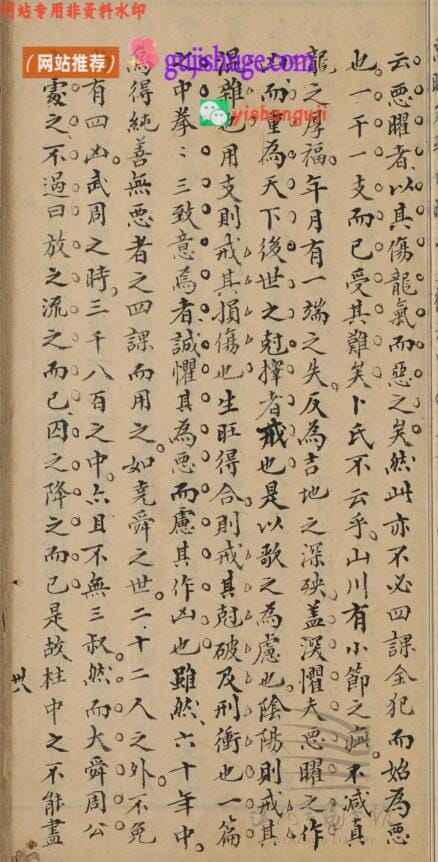 网站专用非资料水印
（网站推荐）
gujishuge.com
yishanguji
云惡曜者以其傷龍氣而惡之矣然此亦不必四課全犯而始為惡
也一干一支而已受其難矣卜氏不云乎山川有小節之疵不減真
龍之厚福年月有一端之失反為吉地之深殃蓋深懼夫惡曜之作
而重為天下後世之尅擇者戒也是以歌之為慮也陰陽則戒其
混雜也用支則戒其損傷也生旺得合則戒其尅破及刑衝也一篇
之中拳〻三致意焉者誠懼其為惡而慮其作凶也雖然六十年中
為得純善無惡者之四課而用之如堯舜之世二十二人之外不免
有四凶武周之時三千八百之中亦且不無三叔然而大舜周公
處之不過曰放之流之而已囚之降之而已是故柱中之不能盡
卅八